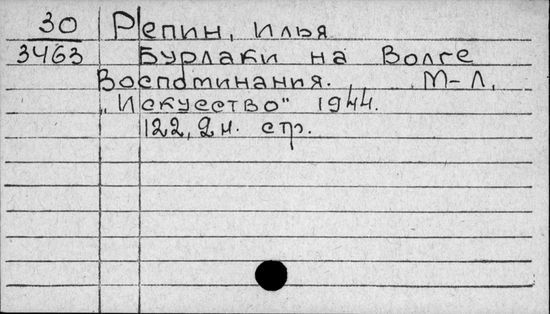 30 Репин, Илья
3463 Бурлаки на Волге
Воспоминания. М-Л.
„Искусство" 1944.
122, 2 н. стр.